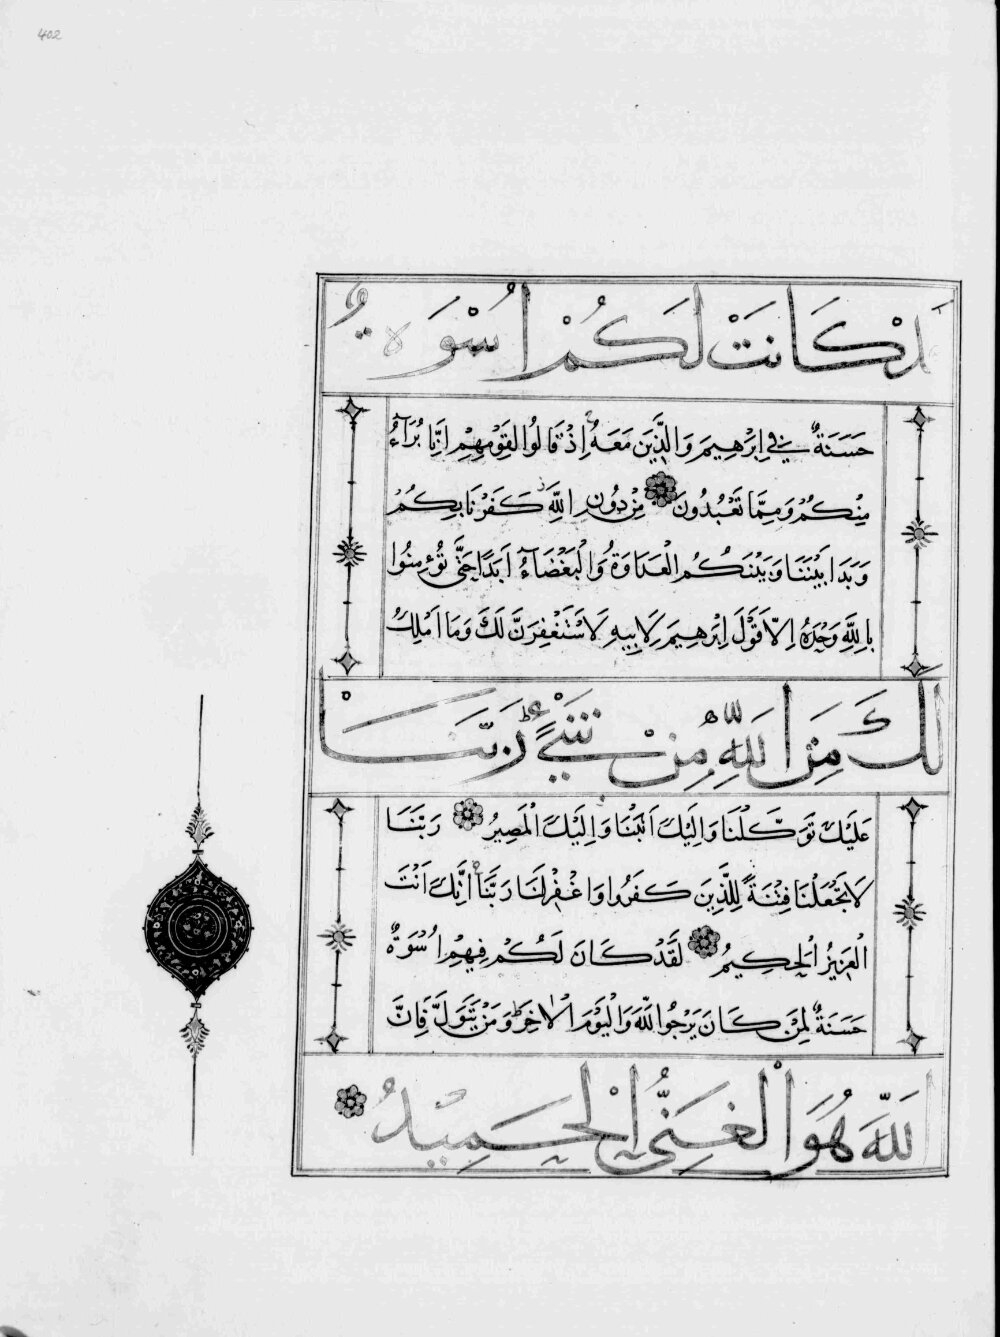 402
قَدْ كَانَتْ لَكُمْ اُسْوَةٌ
حَسَنَةٌ فِي اِبْرٰهِيمَ وَالَّذِينَ مَعَهُ اِذْ قَالُوا لِقَوْمِهِمْ اِنَّا بُرَآءُ
مِنْكُمْ وَمِمَّا تَعْبُدُونَ مِنْ دُونِ اللَّهِ كَفَرْنَا بِكُمْ
وَبَدَا بَيْنَنَا وَبَيْنَكُمُ الْعَدَاوَةُ وَالْبَغْضَآءُ اَبَدًا حَتَّى تُؤْمِنُوا
بِاللَّهِ وَحْدَهُ اِلَّا قَوْلَ اِبْرٰهِيمَ لِاَبِيهِ لَاَسْتَغْفِرَنَّ لَكَ وَمَا اَمْلِكُ
لَكَ مِنَ اللَّهِ مِنْ شَيْءٍ رَبَّنَا
عَلَيْكَ تَوَكَّلْنَا وَاِلَيْكَ اَنَبْنَا وَاِلَيْكَ الْمَصِيرُ رَبَّنَا
لَا تَجْعَلْنَا فِتْنَةً لِلَّذِينَ كَفَرُوا وَاغْفِرْ لَنَا رَبَّنَا اِنَّكَ اَنْتَ
الْعَزِيزُ الْحَكِيمُ لَقَدْ كَانَ لَكُمْ فِيهِمْ اُسْوَةٌ
حَسَنَةٌ لِمَنْ كَانَ يَرْجُوا اللَّهَ وَالْيَوْمَ الْاٰخِرَ وَمَنْ يَتَوَلَّ فَاِنَّ
اللَّهَ هُوَ الْغَنِيُّ الْحَمِيدُ